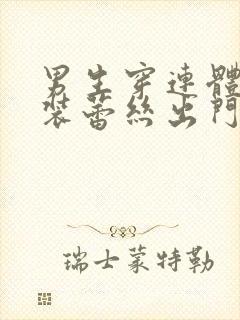 男生穿連體
裝蕾絲出門
瑞士蒙特勒